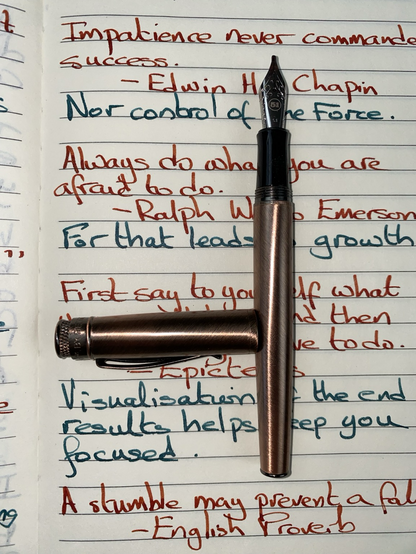 Impatience never commande
success.
- Edwin H Chapin
Nor control of the Force.
Always do what you are
afraid to do.
- Ralph W Emerson
For that leads growth
First say to yourself what
then
to do.
- Epictetus
Visualisation the end
results helps keep you
focused.
A stumble may prevent a fal
- English Proverb